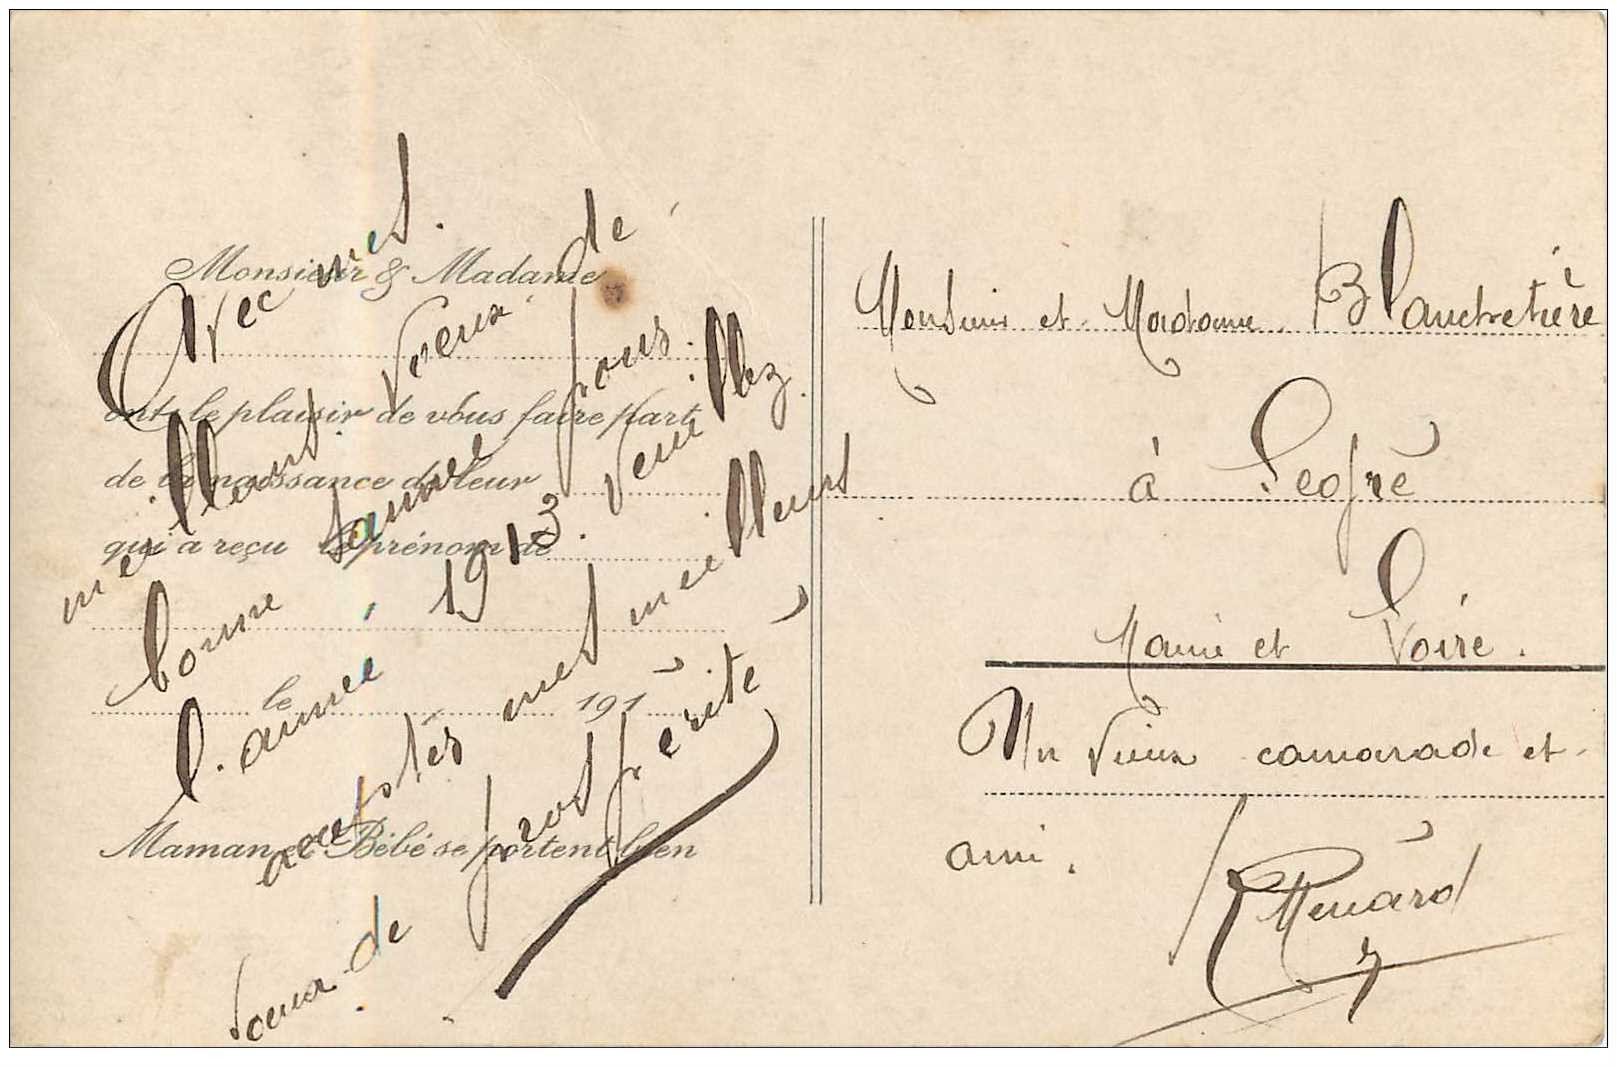 Monsieur & Madame
ont le plaisir de vous faire part
de la naissance de leur
qui a reçu le prénom de
le 191
Maman et Bébé se portent bien
Avec mes
meilleurs voeux de
bonne année pour
l'année 1913. Veuillez
acceptés mes meilleurs
voeux de prospérité
Monsieur et Madame Blanchetière
à Segré
Maine et Loire.
Un vieux camarade et
ami.
Renard